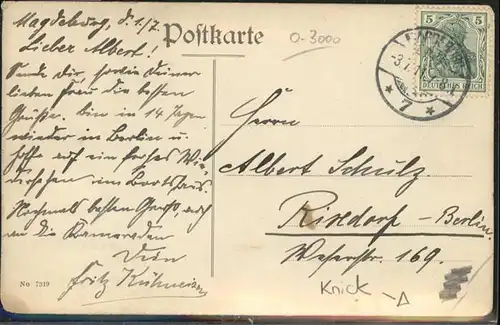 Magdeburg, d. 1/7.
Lieber Albert!
Sende dir, sowie deiner
lieben Frau die besten
Grüße. Bin in 14 Tagen
wieder in Berlin u.
hoffe auf ein frohes Wie-
dersehen im Bootshaus.
Nochmals besten Gruß, auch
an die Kameraden
Dein
Fritz
No 7219
Postkarte
0-3000
5 5
DEUTSCHES REICH
* 7 *
Herrn
Albert Schulz.
Rixdorf-Berlin.
Weserstr. 169.
Knick